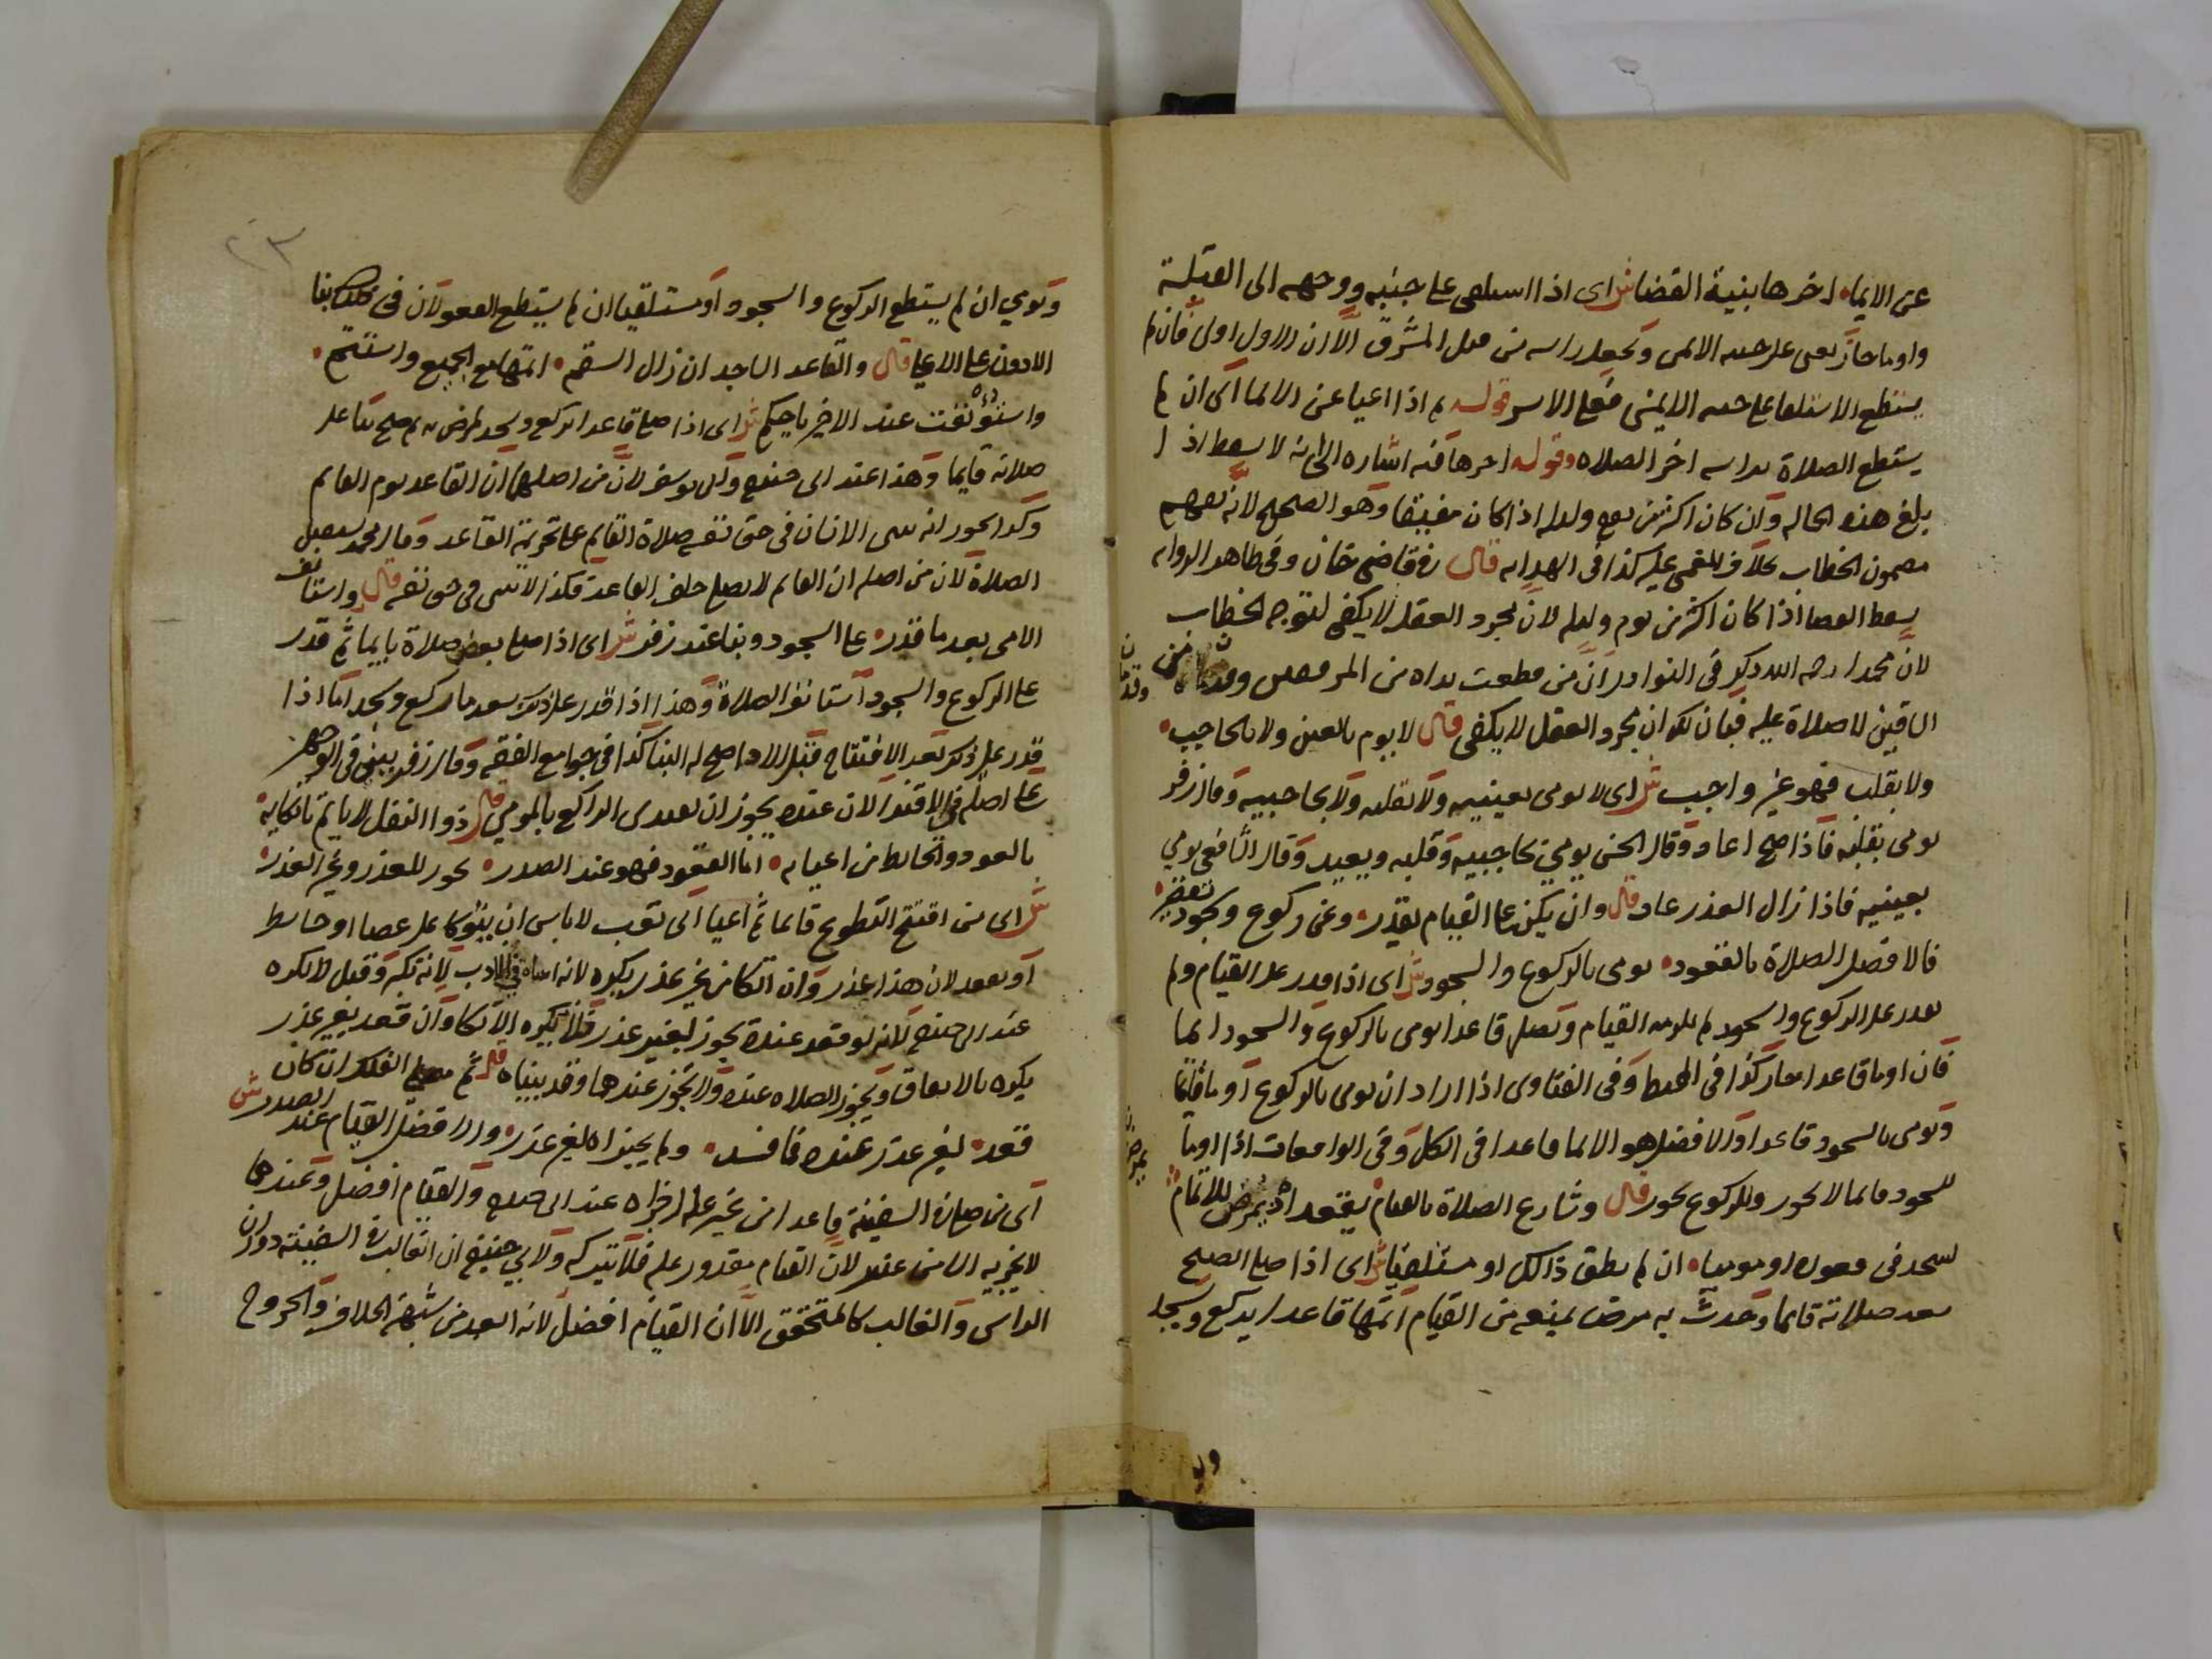 عن الايماء اخرها بنية القضا ش اى اذا استلقى على جنبه ووجهه الى القبلة
واوما جاز يعنى على جنبه الايمن ويجعل راسه من قبل المشرق الا ان الاول اولى فان لم
يستطع الاستلقا على جنبه الايمنى فعلى الايسر قوله ثم اذا اعيا عن الايما اى ان لم
يستطع الصلاة براسه اخر الصلاه وقوله اخرها فيه اشاره الى انه لا يسقط اذا
بلغ هذه الحاله وان كان اكثر من يوم وليله اذا كان مفيقا وهو الصحيح لانه يفهم
مضمون الخطاب بخلاف المغمى عليه كذا فى الهدايه قال قاضى خان وفى ظاهر الروايه
يسقط القضا اذا كان اكثر من يوم وليله لان مجرد العقل لا يكفى لتوجه الخطاب
لان محمدا رحمه الله ذكر فى النوادر ان من قطعت يداه من المرفقين وقدماه من
الساقين لا صلاة عليه فبان لك ان مجرد العقل لا يكفى قال لا يوم بالعين ولا بالحاجب
ولا بقلب فهو غير واجب ش اى لا يومى بعينيه ولا بقلبه ولا بحاجبيه وقال زفر
يومى بقلبه فاذا صح اعاد وقال الحسن يومى بحاجبيه وقلبه ويعيد وقال الشافعى يومى
بعينيه فاذا زال العذر عاد قال وان يكن على القيام يقدر وعن ركوع وسجود
فالافضل الصلاة بالقعود يومى بالركوع والسجود ش اى اذا قدر على القيام ولم
يقدر على الركوع والسجود لم يلزمه القيام ويصلى قاعدا يومى بالركوع والسجود ايما
فان اوما قاعدا جاز كذا فى المحيط وفى الفتاوى اذا اراد ان يومى بالركوع اوما قائما
ويومى بالسجود قاعدا والافضل هو الايما قاعدا فى الكل وفى الواقعات اذا اوما
للسجود قائما لا يجوز وللركوع يجوز قال وشارع الصلاة بالقيام يقعد اذ يمرض للاتمام
يسجد فى قعوده او موميا ان لم يطق ذلك او مستلقيا ش اى اذا صلى الصحيح
بعد صلاته قائما وحدث به مرض يمنعه من القيام اتمها قاعدا يركع ويسجد
ويومي ان لم يستطع الركوع والسجود او مستلقيا ان لم يستطع القعود لان فى بنا
الادون على الاعلا قال والقاعد الساجد ان زال السقم اتمها مع الجميع واستتم
واستؤنفت عند الاخير ياحكم ش اى اذا صلى قاعدا يركع ويسجد لمرض به ثم صح بنا على
صلاته قايما وهذا عند ابى حنيفه وابى يوسف لان من اصلهما ان القاعد يوم القايم
وكذا يجوز ان يبنى الانسان فى حق نفسه صلاة القايم على تحريمة القاعد وقال محمد يستقبل
الصلاة لان من اصله ان القايم لا يصلى خلف القاعد فكذا لا يبنى فى حق نفسه قال واستانف
الامى بعد ما قدر على السجود وبنا عند زفر ش اى اذا صلى بعض صلاة بايما ثم قدر
على الركوع والسجود استانف الصلاة وهذا اذا قدر على ذلك بعد ما ركع وسجد اما اذا
قدر على ذلك بعد الافتتاح قبل الادا صح له البنا كذا فى جوامع الفقه وقال زفر يبنى فى الوجهين
على اصله فى الاقتدا لان عنده يجوز ان يقتدى الراكع بالمومي قال ذوا النفل لا باس باتكايه
بالعود والحايط من اعيايه اما القعود فهو عند الصدر يجوز للعذر وغير العذر
ش اى من افتتح التطوع قائما ثم اعيا اى تعب لا باس ان يتوكا على عصا او حايط
او يقعد لان هذا عذر وان اتكا من غير عذر يكره لانه اساة فى الادب لانه تكبر وقيل لا يكره
عند ابى حنيفه لانه لو قعد عنده يجوز بغير عذر فلا يكره الاتكا وان قعد بغير عذر
يكره بالاتفاق ويجوز الصلاه عنده ولا تجوز عندهما وقد بيناه قال ثم مصلى الفلك ان كان
قعد لغير عذر عنده فما فسد ولم يجيزاه لغير عذر والافضل القيام عند الصدر ش
اى من صلى فى السفينة قاعدا من غير علة اجزاه عند ابى حنيفه والقيام افضل وعندهما
لا يجزيه الا من عذر لان القيام مقدور عليه فلا يتركه ولابي حنيفة ان الغالب فى السفينة دوران
الراس والغالب كالمتحقق الا ان القيام افضل لانه ابعد من شبهة الخلاف والخروج